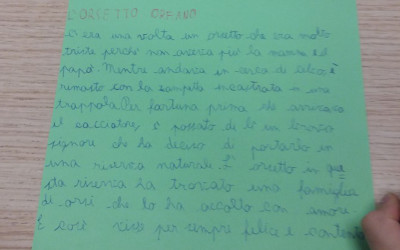 L'ORSETTO ORFANO
C'era una volta un orsetto che era molto
triste perché non aveva più la mamma e il
papà. Mentre andava in cerca di cibo è
rimasto con la zampetta incastrata in una
trappola. Per fortuna prima che arrivasse
il cacciatore, è passato di lì un bravo
signore che ha deciso di portarlo in
una riserva naturale. L'orsetto in que
sta riserva ha trovato una famiglia
di orsi che lo ha accolto con amore
E così visse per sempre felice e contento